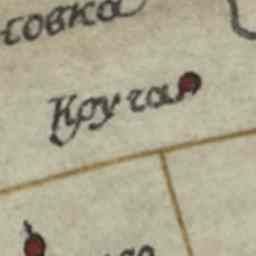 товка
Круча